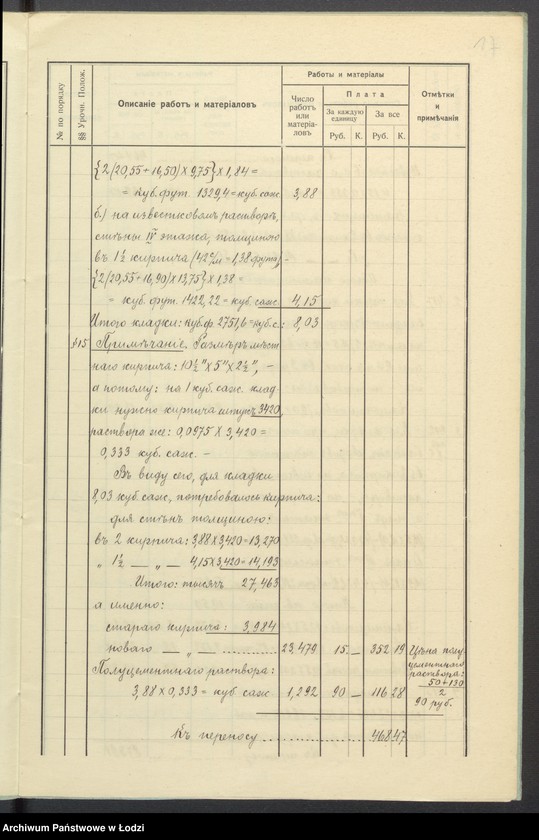 17
№ по порядку
§§ Урочн. Полож.
Описаніе работъ и матеріаловъ
Работы и матеріалы
Число работъ или матеріа-ловъ
Плата
За каждую единицу
За все
Руб. К. Руб. К.
Отмѣтки и примѣчанія
{2(20,55+16,50)×9,75}×1,84=
= куб. фут. 1329,4 = куб. саж. 3,88
б.) на известковомъ растворѣ,
стѣны IV этажа, толщиною
въ 1½ кирпича (42 с/м = 1,38 фут.) –
{2(20,55+16,90)×13,75}×1,38=
= куб. фут. 1422,22 = куб. саж. 4,15
Итого кладки: куб. ф. 2751,6 = куб. с.: 8,03
§15 Примѣчаніе. Размѣръ мѣст
наго кирпича: 10½"×5"×2½", –
а потому: на 1 куб. саж. клад
ки нужно кирпича штукъ 3420,
раствора же: 0,0975 × 3,420 =
0,333 куб. саж. –
Въ виду сего, для кладки
8,03 куб. саж, потребовалось кирпича:
для стѣнъ толщиною:
въ 2 кирпича: 3,88×3,420=13,270
„ 1½ — „ — 4,15×3,420=14,193
Итого: тысячъ 27,463
а именно:
стараго кирпича: 3,984
новаго — „ — 23,479 15 — 352 19
Полуцементнаго раствора:
3,88 × 0,333 = куб саж 1,292 90 — 116 28
Цѣна полу
цементнаго
раствора:
50+130
2
90 руб.
Къ переносу 468 47
Archiwum Państwowe w Łodzi